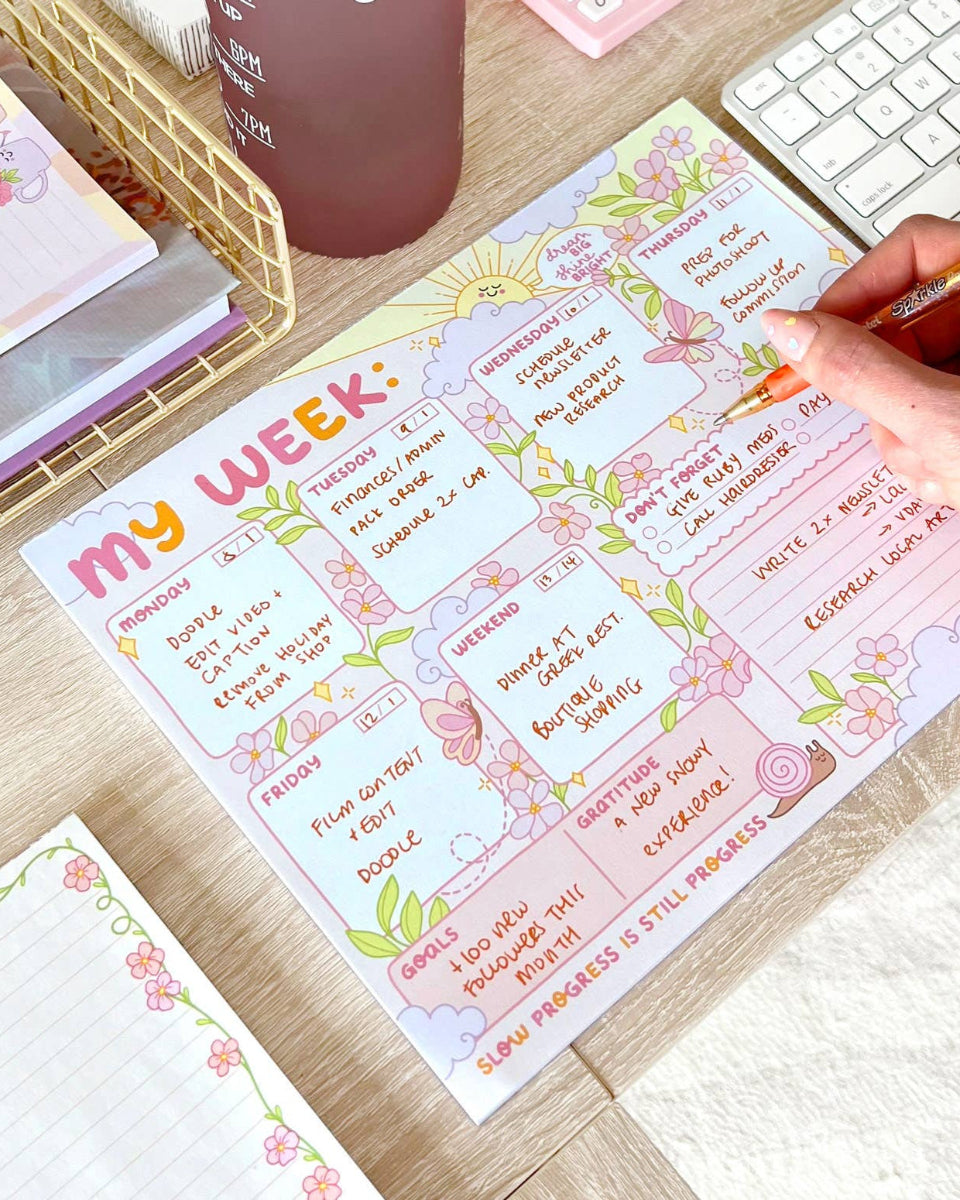 UP
6PM
THERE
7PM
IT
esc
1
2
3
4
Q
W
tab
A
caps lock
Sparkle
MY WEEK:
MONDAY
8/1
DOODLE
EDIT VIDEO +
CAPTION
REMOVE HOLIDAY
FROM SHOP
TUESDAY
9/1
FINANCES/ADMIN
PACK ORDER
SCHEDULE 2x CAP.
WEDNESDAY
10/1
SCHEDULE
NEWSLETTER
NEW PRODUCT
RESEARCH
dream
BIG
shine
BRIGHT
THURSDAY
11/1
PREP FOR
PHOTOSHOOT
FOLLOW UP
COMMISSION
FRIDAY
12/1
FILM CONTENT
+ EDIT
DOODLE
WEEKEND
13/14
DINNER AT
GREEK REST.
BOUTIQUE
SHOPPING
DON'T FORGET
GIVE RUBY MEDS
CALL HAIRDRESSER
PAY
WRITE 2x NEWSLET
RESEARCH LOCAL ART
GOALS
+100 NEW
FOLLOWERS THIS
MONTH
GRATITUDE
A NEW SNOWY
EXPERIENCE!
SLOW PROGRESS IS STILL PROGRESS